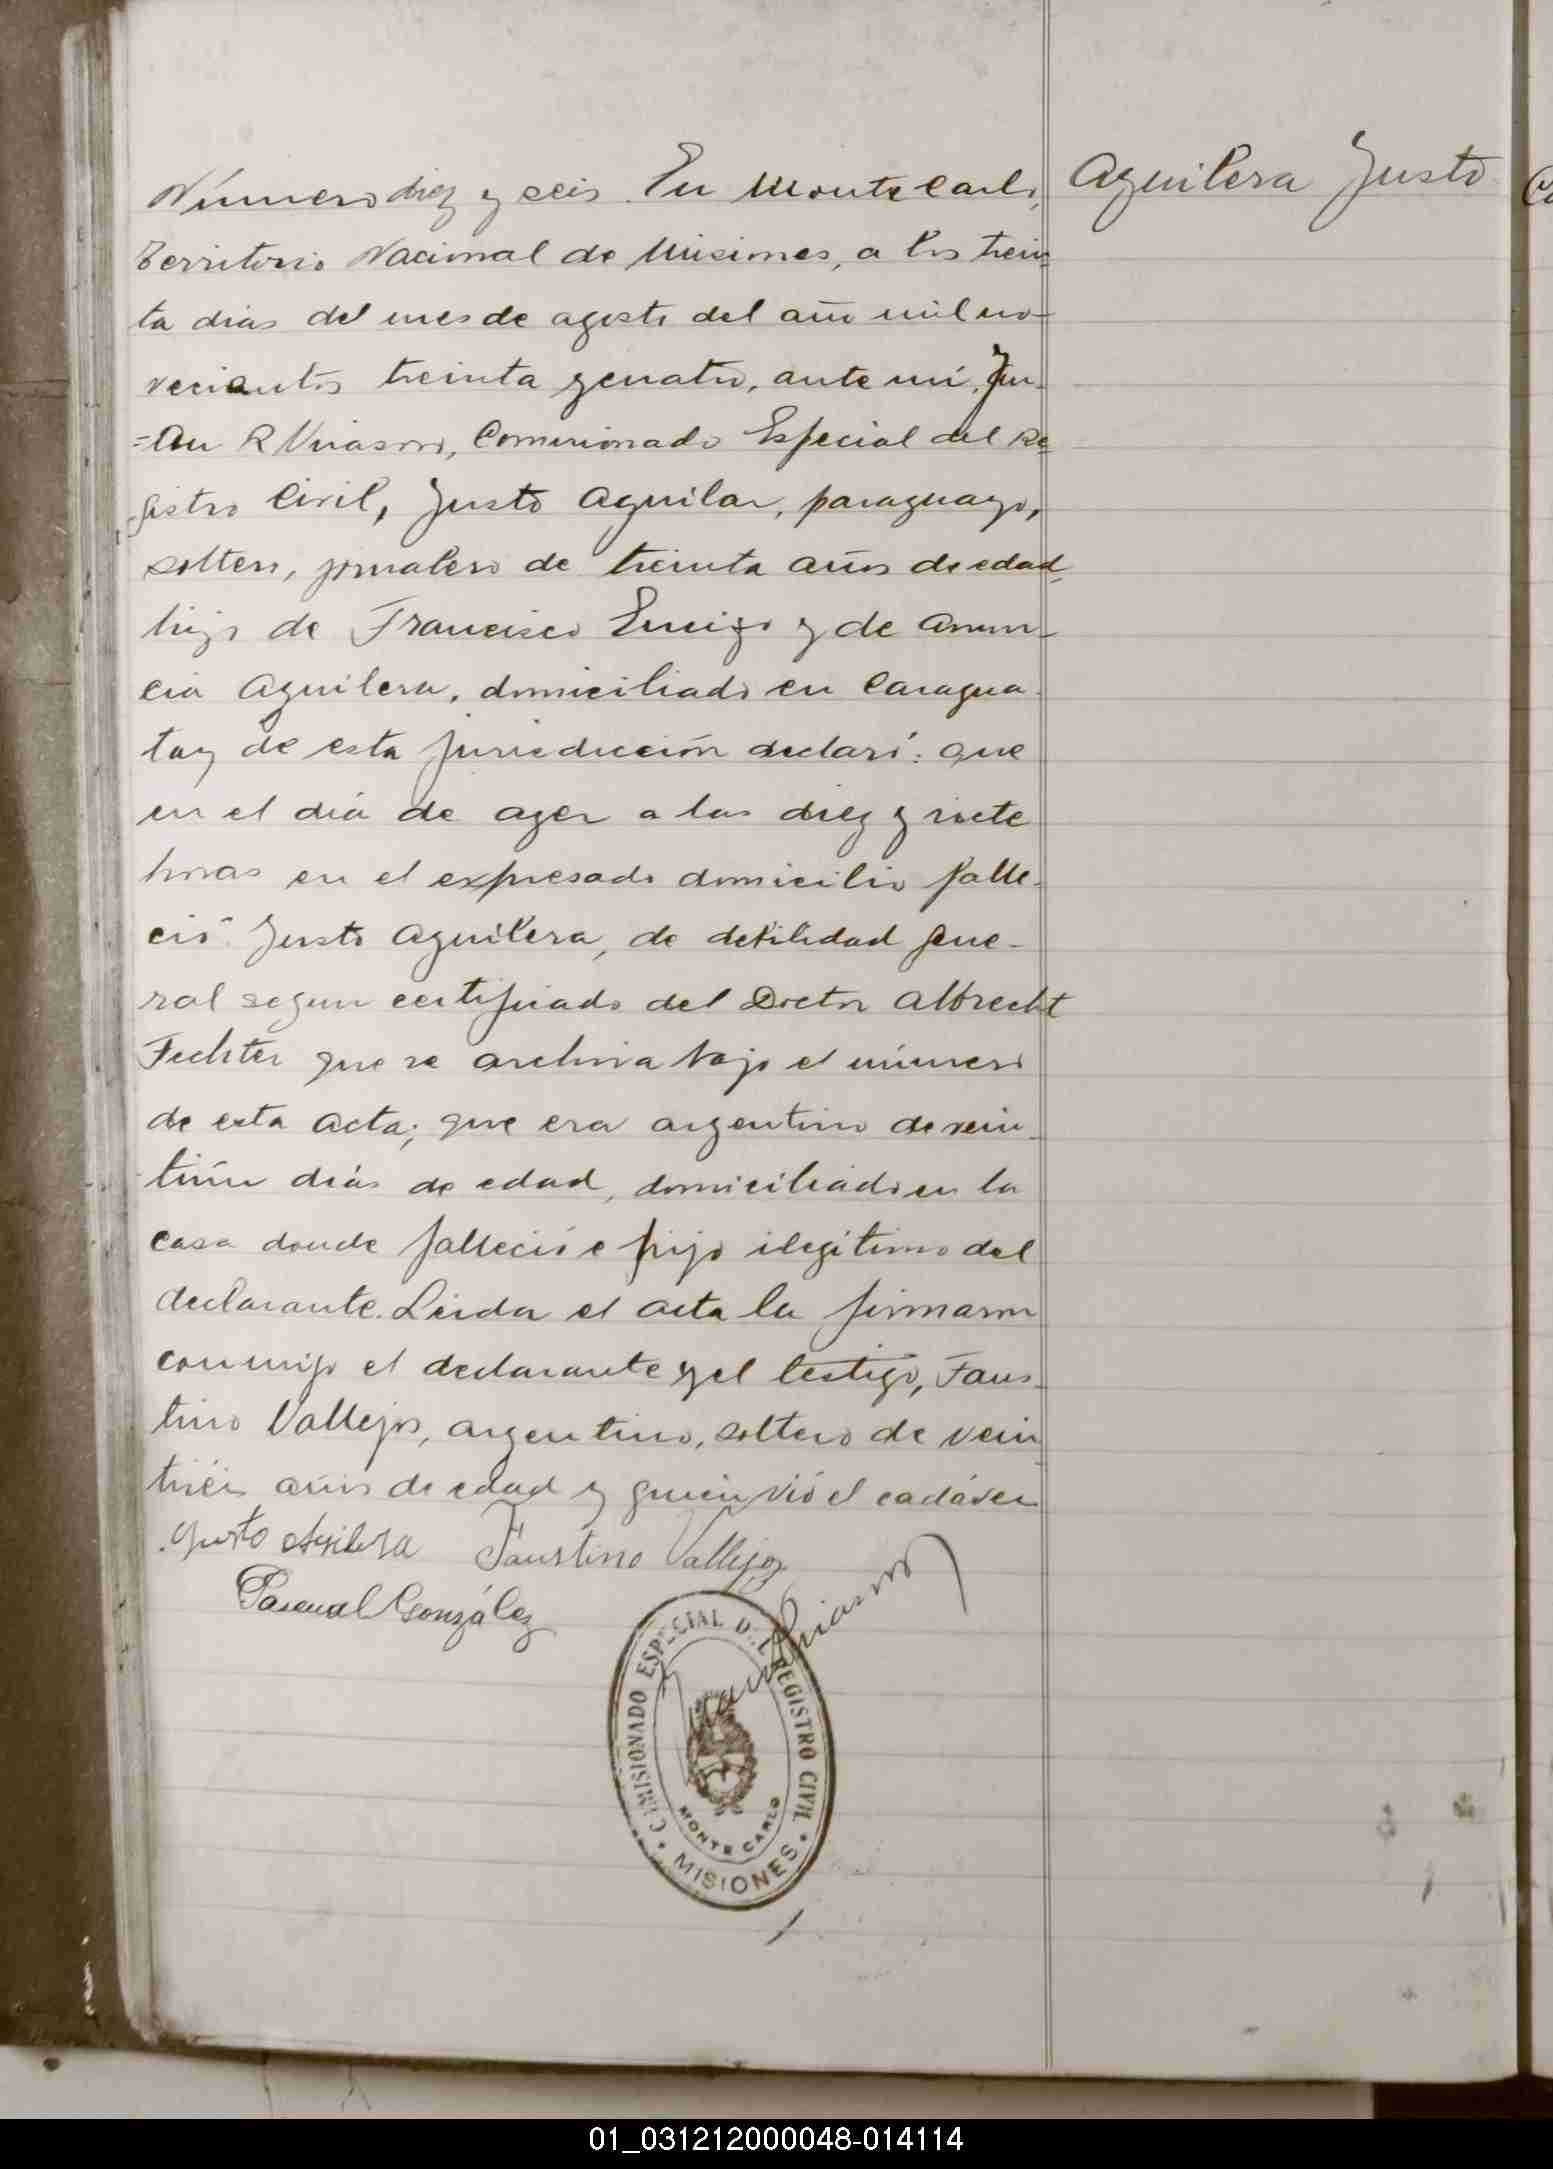 Número diez y seis. En Monte Carlo,
Territorio Nacional de Misiones, a los trein
ta dias del mes de agosto del año mil no-
vecientos treinta y cuatro, ante mi, Ju-
=an R Virasoro, Comisionado Especial del Re
gistro Civil, Justo Aguilar, paraguayo,
soltero, jornalero de treinta años de edad,
hijo de Francisco y de Anun-
cia Aguilera, domiciliado en Caragua-
tay de esta jurisdicción declaró: que
en el día de ayer a las diez y siete
horas en el expresado domicilio falle-
ció Justo Aguilera, de debilidad gene-
ral segun certificado del Doctor Albrecht
Fechter que se archiva bajo el número
de esta acta; que era argentino de vein-
tiún dias de edad, domiciliado en la
casa donde falleció e hijo ilegítimo del
declarante. Leida el acta la firmaron
conmigo el declarante y el testigo, Faus-
tino Vallejos, argentino, soltero de vein
tiséis años de edad y quien vió el cadáver
Justo Faustino Vallejos
Pascual González
Juan R Virasoro
COMISIONADO ESPECIAL DEL REGISTRO CIVIL
MONTE CARLO
MISIONES
Aguilera Justo
01_031212000048-014114